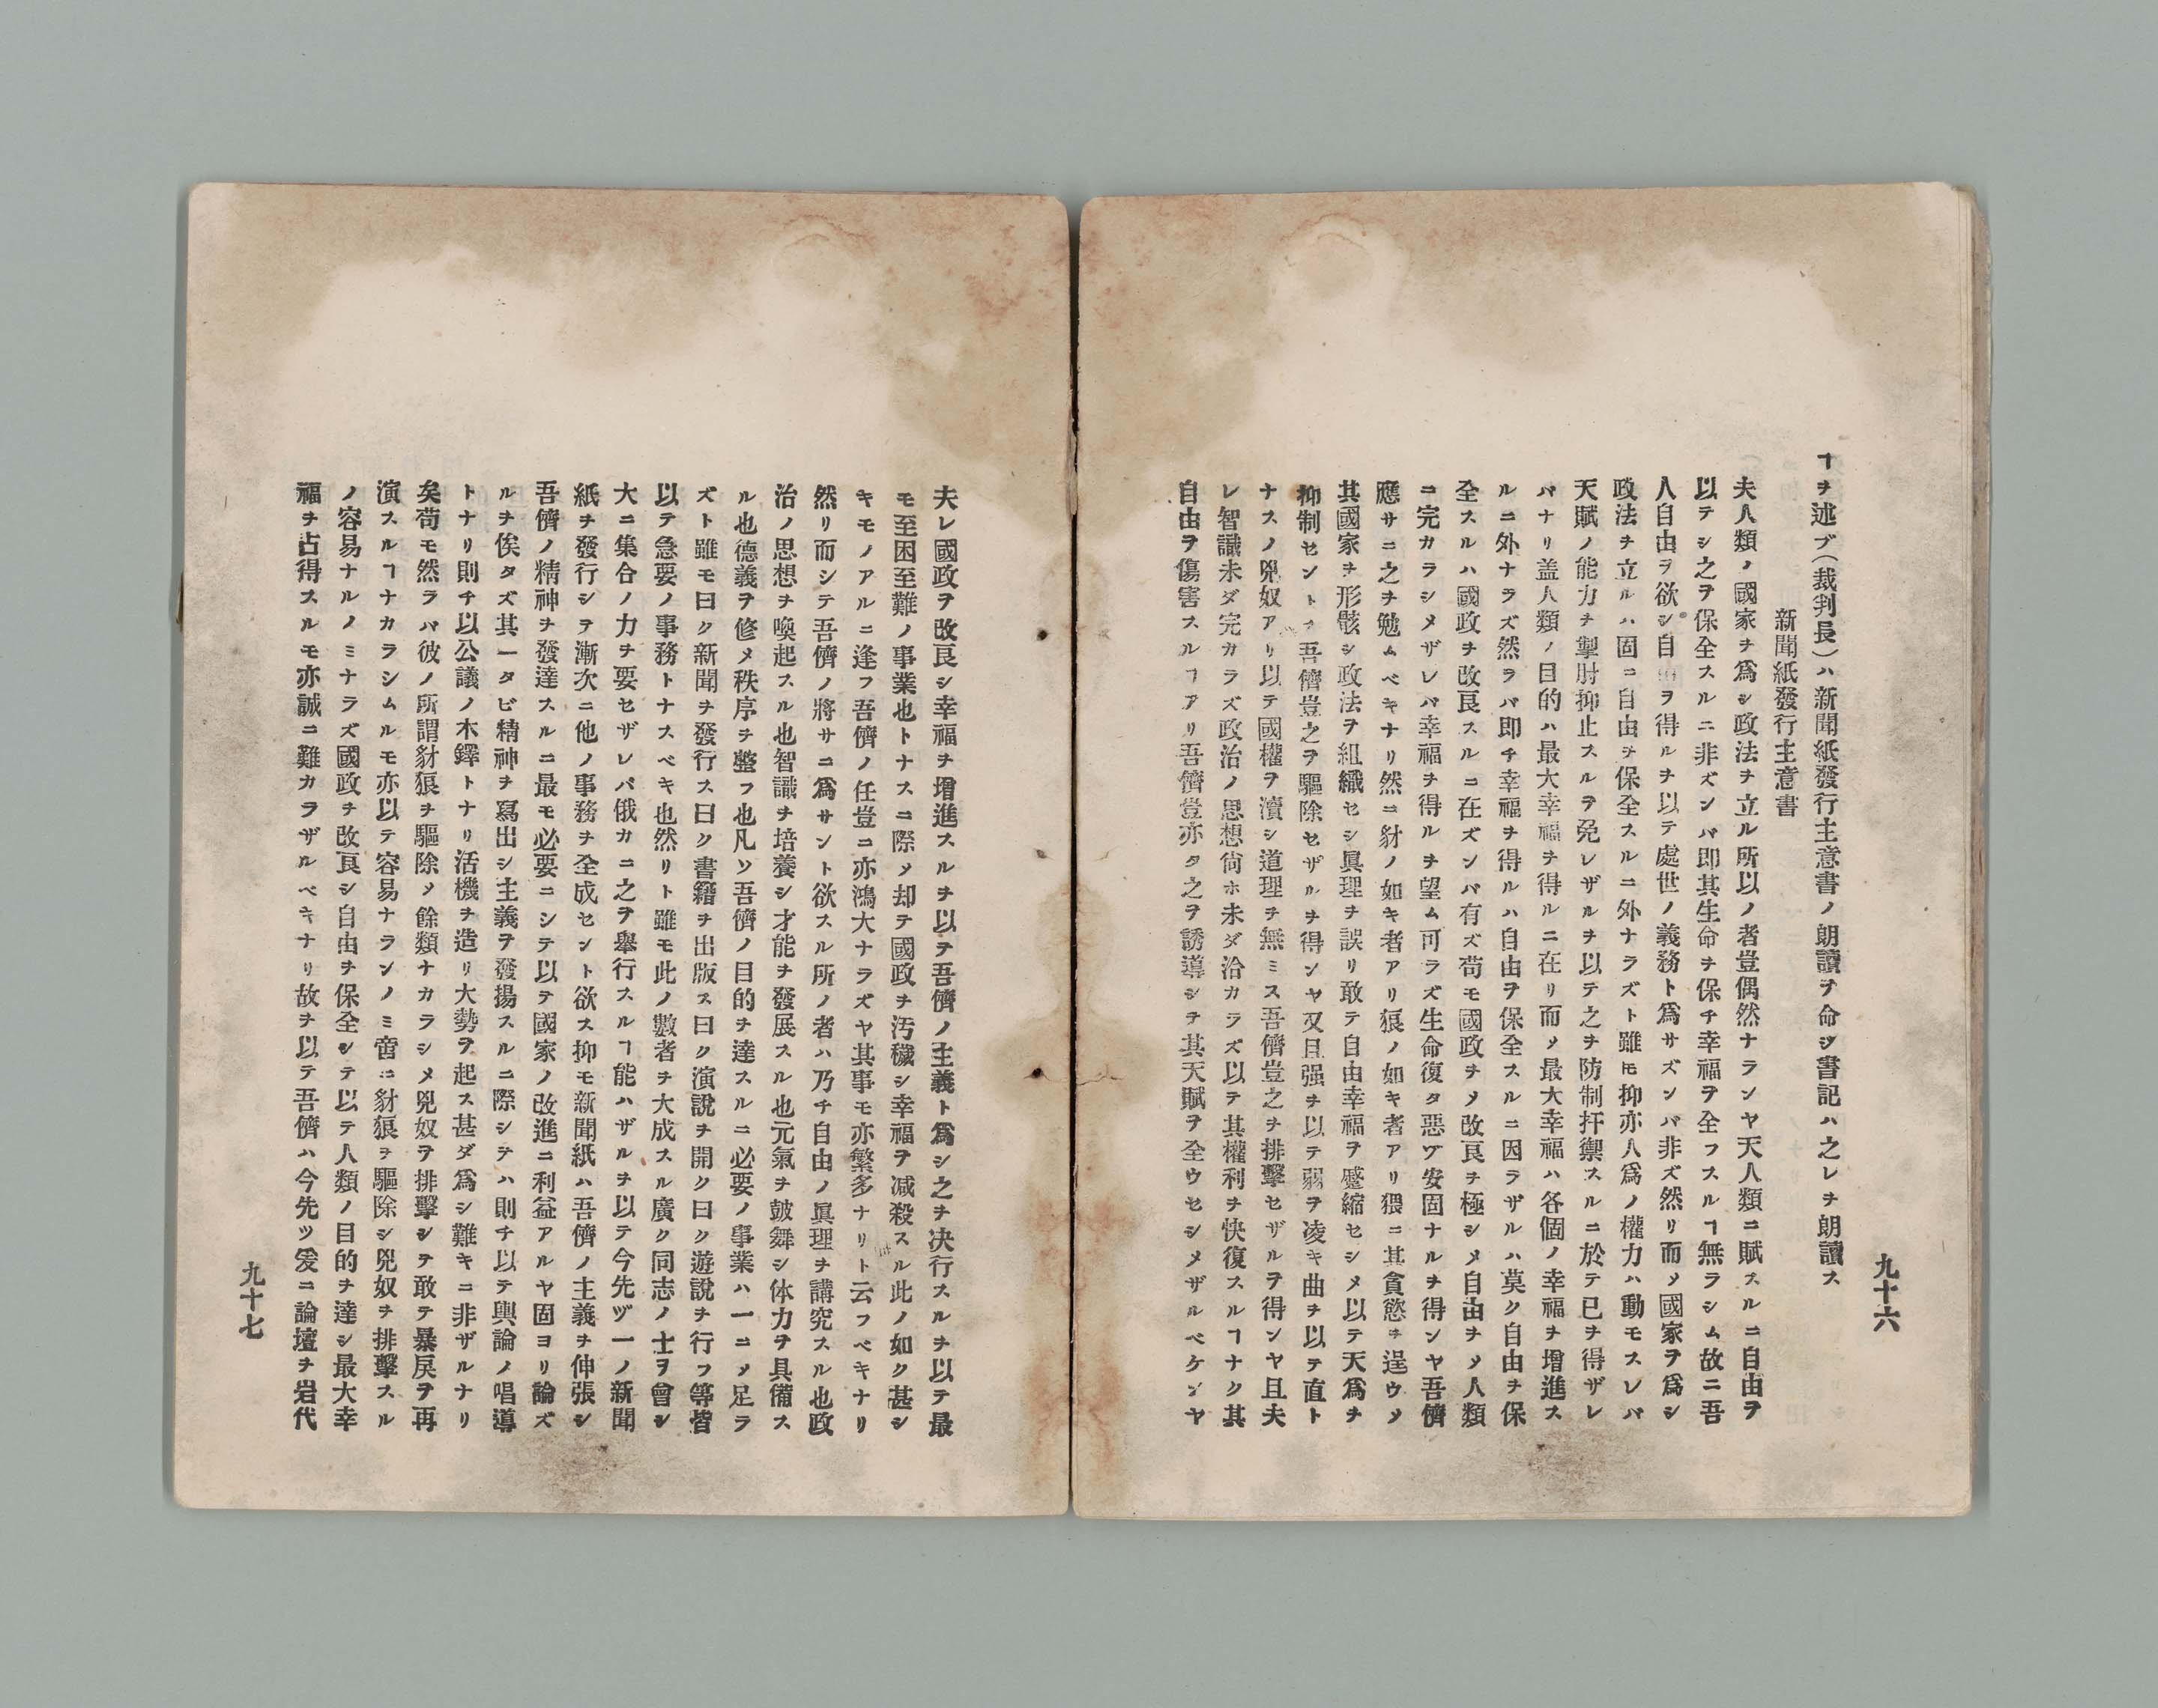 九十六
ヿヲ述ブ（裁判長）ハ新聞紙發行主意書ノ朗讀ヲ命ジ書記ハ之レヲ朗讀ス
新聞紙發行主意書
夫人類ノ國家ヲ爲シ政法ヲ立ル所以ノ者豈偶然ナランヤ天人類ニ賦スルニ自由ヲ
以テシ之ヲ保全スルニ非ズンバ即其生命ヲ保チ幸福ヲ全フスルヿ無ラシム故ニ吾
人自由ヲ欲シ自ヲ得ルヲ以テ處世ノ義務ト爲サズンバ非ズ然リ而メ國家ヲ爲シ
政法ヲ立ルハ固ニ自由ヲ保全スルニ外ナラズト雖𪜈抑亦人爲ノ權力ハ動モスレバ
天賦ノ能力ヲ掣肘抑止スルヲ免レザルヲ以テ之ヲ防制扞禦スルニ於テ已ヲ得ザレ
バナリ盖人類ノ目的ハ最大幸福ヲ得ルニ在リ而メ最大幸福ハ各個ノ幸福ヲ增進ス
ルニ外ナラズ然ラバ即チ幸福ヲ得ルハ自由ヲ保全スルニ因ラザルハ莫ク自由ヲ保
全スルハ國政ヲ改良スルニ在ズンバ有ズ苟モ國政ヲメ改良ヲ極シメ自由ヲメ人類
ニ完カラシメザレバ幸福ヲ得ルヲ望ム可ラズ生命復タ惡ヅ安固ナルヲ得ンヤ吾儕
應サニ之ヲ勉ムベキナリ然ニ豺ノ如キ者アリ狼ノ如キ者アリ猥ニ其貪慾ヲ逞ウメ
其國家ヲ形骸シ政法ヲ組織セシ眞理ヲ誤リ敢テ自由幸福ヲ蹙縮セシメ以テ天爲ヲ
抑制セントス吾儕豈之ヲ驅除セザルヲ得ンヤ又且强ヲ以テ弱ヲ凌キ曲ヲ以テ直ト
ナスノ兇奴アリ以テ國權ヲ瀆シ道理ヲ無ミス吾儕豈之ヲ排擊セザルヲ得ンヤ且夫
レ智識未ダ完カラズ政治ノ思想尙ホ未ダ洽カラズ以テ其權利ヲ快復スルヿナク其
自由ヲ傷害スルヿアリ吾儕豈亦タ之ヲ誘導シヲ其天賦ヲ全ウセシメザルベケンヤ
夫レ國政ヲ改良シ幸福ヲ增進スルヲ以テ吾儕ノ主義ト爲シ之ヲ决行スルヲ以テ最
モ至困至難ノ事業也トナスニ際メ却テ國政ヲ汚穢シ幸福ヲ减殺スル此ノ如ク甚シ
キモノアルニ逢フ吾儕ノ任豈ニ亦鴻大ナラズヤ其事モ亦繁多ナリト云フベキナリ
然リ而シテ吾儕ノ將サニ爲サント欲スル所ノ者ハ乃チ自由ノ眞理ヲ講究スル也政
治ノ思想ヲ喚起スル也智識ヲ培養シ才能ヲ發展スル也元氣ヲ皷舞シ体力ヲ具備ス
ル也德義ヲ修メ秩序ヲ整フ也凡ソ吾儕ノ目的ヲ達スルニ必要ノ事業ハ一ニメ足ラ
ズト雖モ曰ク新聞ヲ發行ス曰ク書籍ヲ出版ス曰ク演說ヲ開ク曰ク遊說ヲ行フ等皆
以テ急要ノ事務トナスベキ也然リト雖モ此ノ數者ヲ大成スル廣ク同志ノ士ヲ曾シ
大ニ集合ノ力ヲ要セザレバ俄カニ之ヲ舉行スルヿ能ハザルヲ以テ今先ヅ一ノ新聞
紙ヲ發行シテ漸次ニ他ノ事務ヲ全成セント欲ス抑モ新聞紙ハ吾儕ノ主義ヲ伸張シ
吾儕ノ精神ヲ發達スルニ最モ必要ニシテ以テ國家ノ改進ニ利益アルヤ固ヨリ論ズ
ルヲ俟タズ其一タビ精神ヲ寫出シ主義ヲ發揚スルニ際シテハ則チ以テ輿論ノ唱導
トナリ則チ以公議ノ木鐸トナリ活機ヲ造リ大勢ヲ起ス甚ダ爲シ難キニ非ザルナリ
矣苟モ然ラバ彼ノ所謂豺狼ヲ驅除メ餘類ナカラシメ兇奴ヲ排擊シテ敢テ暴戾ヲ再
演スルヿナカラシムルモ亦以テ容易ナランノミ啻ニ豺狼ヲ驅除シ兇奴ヲ排擊スル
ノ容易ナルノミナラズ國政ヲ改良シ自由ヲ保全シテ以テ人類ノ目的ヲ達シ最大幸
福ヲ占得スルモ亦誠ニ難カラザルベキナリ故ヲ以テ吾儕ハ今先ツ爰ニ論壇ヲ岩代
九十七